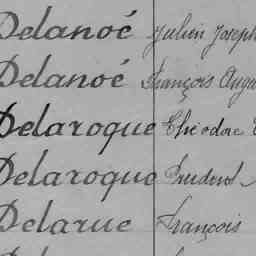 Delanoé Julien Joseph
Delanoé François
Delaroque Théodore
Delaroque Prudent
Delarue François